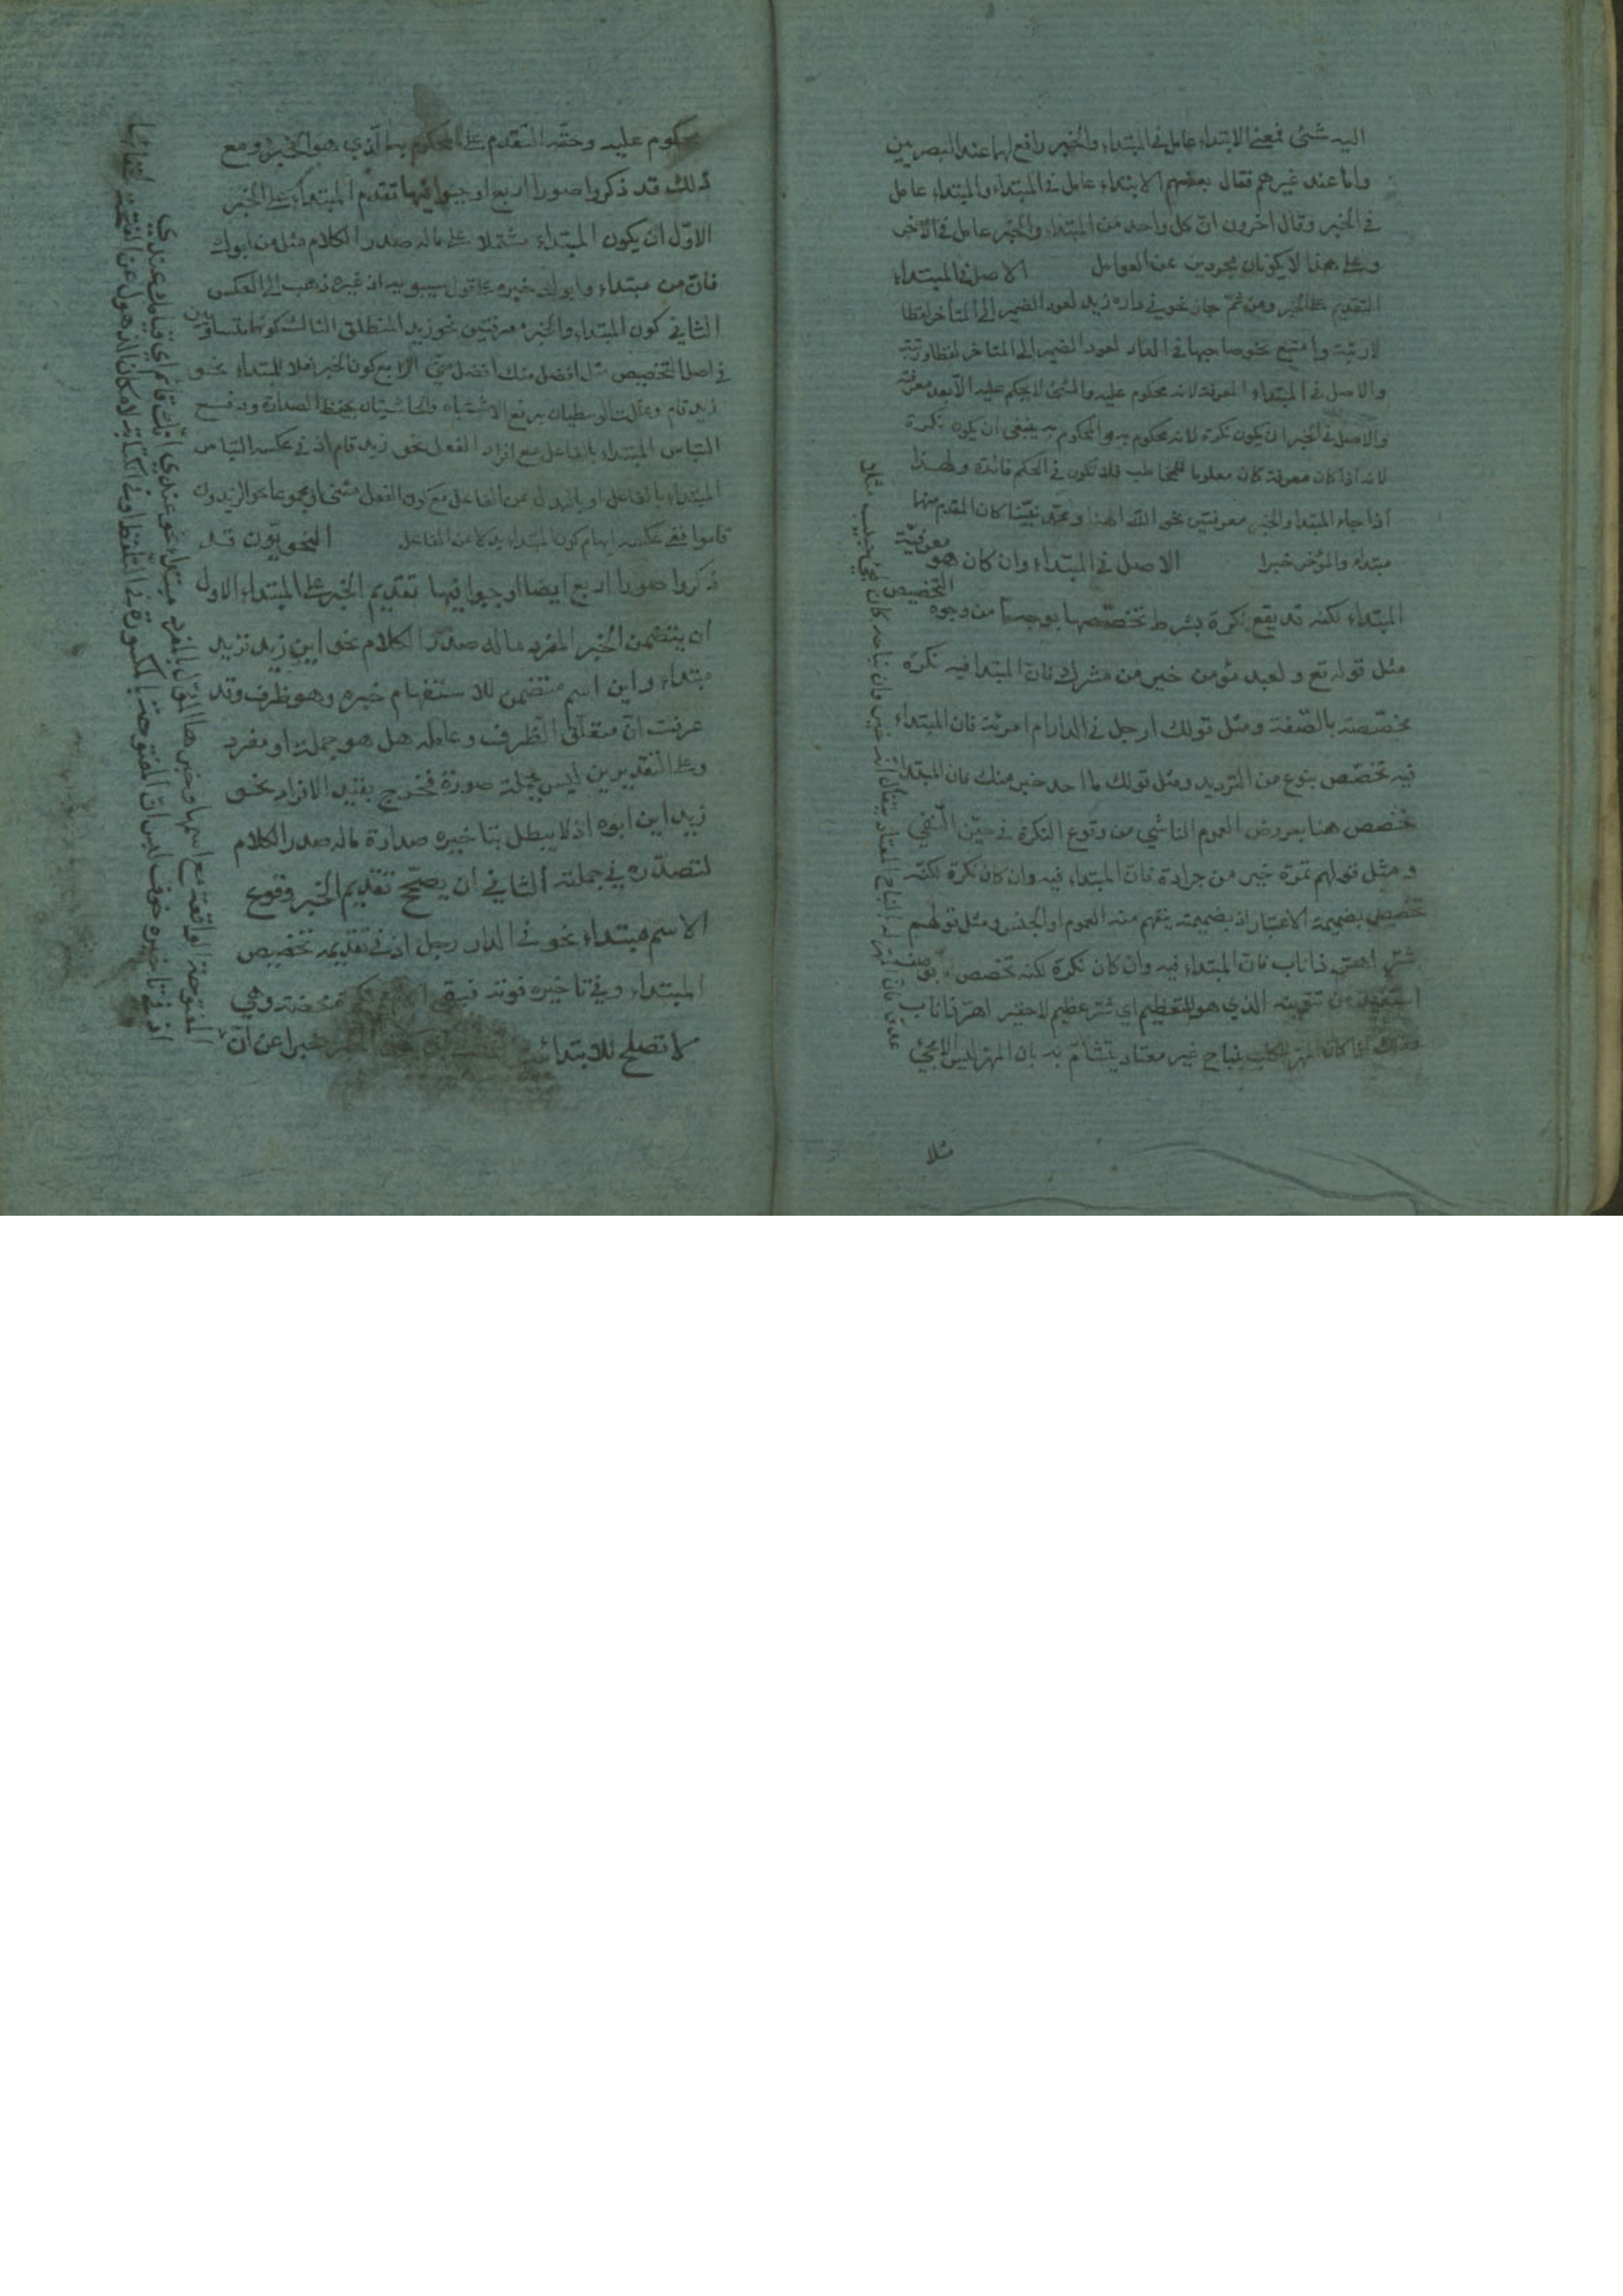 اليه شئ فمعنى الابتداء عامل في المبتداء والخبر رافع لهما عند البصريين
واما عند غيرهم فقال بعضهم الابتداء عامل في المبتداء والمبتداء عامل
في الخبر وقال اخرون ان كل واحد من المبتداء والخبر عامل في الآخر
وعلى هذا لا يكونان مجردين عن العوامل الاصل في المبتداء
التقديم على الخبر ومن ثم جاز نحو في داره زيد لعود الضمير الى المتأخر لفظا
لا رتبة وامتنع نحو صاحبها في الدار لعود الضمير الى المتاخر لفظا ورتبة
والاصل في المبتداء المعرفة لانه محكوم عليه والشئ لا يحكم عليه الا بعد معرفته
والاصل في الخبر ان يكون نكرة لانه محكوم به والمحكوم به ينبغي ان يكون نكرة
لانه اذا كان معرفة كان معلوما للمخاطب فلا تكون في الحكم فائدة ولهذا
اذا جاء المبتداء والخبر معرفتين نحو الله الهنا ومحمد نبينا كان المقدم منهما
مبتداء والمؤخر خبرا الاصل في المبتداء وان كان هو معرفية
المبتداء لكنه قد يقع نكرة بشرط تخصصها بوجه ما من وجوه التخصيص
مثل قوله تع ولعبد مؤمن خير من مشرك فان المبتدا فيه نكرة
مخصصة بالصفة ومثل قولك ارجل في الدار ام امرئة فان المبتداء
فيه تخصص بنوع من الترديد ومثل قولك ما احد خير منك فان المبتداء
تخصص هنا بعروض العموم الناشي من وقوع النكرة في حيز النفي
ومثل قولهم تمرة خير من جرادة فان المبتداء فيه وان كان نكرة لكنه
تخصص بضميمة الاعتبار اذ بضميمته يفهم منه العموم او الجنس ومثل قولهم
شر اهر ذا ناب فان المبتداء فيه وان كان نكرة لكنه تخصص بوصف
استفيد من تنوينه الذي هو للتعظيم اي شر عظيم لا حقير اهر ذا ناب
وذلك اذا كان المهر للكلب بنباح غير معتاد يتشأم به بان المهر ليس الا مجئ
عدو فان المهر له بالنباح المعتاد يقال انه خير وان نباحه كان لمجئ حبيب مثلا
مثلا
محكوم عليه وحقه التقدم على المحكوم به الذي هو الخبر ومع
ذلك قد ذكروا صورا اربع اوجبوا فيها تقدم المبتداء على الخبر
الاول ان يكون المبتداء مشتملا على ماله صدر الكلام مثل من ابوك
فان من مبتداء وابوك خبره على قول سيبويه اذ غيره ذهب الى العكس
الثاني كون المبتداء والخبر معرفتين نحو زيد المنطلق الثالث كونهما متساويين
في اصل التخصيص مثل افضل منك افضل مني الرابع كون الخبر فعلا للمبتداء نحو
زيد قام وعللت الوسطيان برفع الاشتباه والحاشيتان بحفظ الصدارة ودفع
التباس المبتداء بالفاعل مع افراد الفعل نحو زيد قام اذ في عكسه التباس
المبتداء بالفاعل او بالبدل عن الفاعل مع كون الفعل مثنى او مجموعا نحو الزيدون
قاموا ففي عكسه ايهام كون المبتداء بدلا عن الفاعل النحويون قد
ذكروا صورا اربع ايضا اوجبوا فيها تقديم الخبر على المبتداء الاول
ان يتضمن الخبر المفرد ماله صدر الكلام نحو اين زيد فزيد
مبتداء واين اسم متضمن للاستفهام خبره وهو ظرف وقد
عرفت ان متعلق الظرف وعامله هل هو جملة او مفرد
وعلى التقديرين ليس بجملة صورة فخرج بقيد الافراد نحو
زيد اين ابوه اذ لا يبطل بتاخيره صدارة ماله صدر الكلام
لتصدره في جملته الثاني ان يصحح تقديم الخبر وقوع
الاسم مبتداء نحو في الدار رجل اذ في تقديمه تخصيص
المبتداء وفي تاخيره فوته فيبقى نكرة محضة وهي
لا تصلح للابتداء خبرا عن ان
المفتوحة الواقعة مع اسمها وخبرها الماول بالمفرد مبتداء نحو عندي انك قائم اي قيامك عندي
اذ في تاخيره خوف لبس ان المفتوحة بالمكسورة في التلفظ او في الكتابة لامكان الذهول عن الفتحة